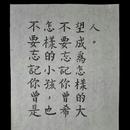 不要忘記你曾是
怎樣的小孩，也
不要忘記你曾希
望成為怎樣的大
人。